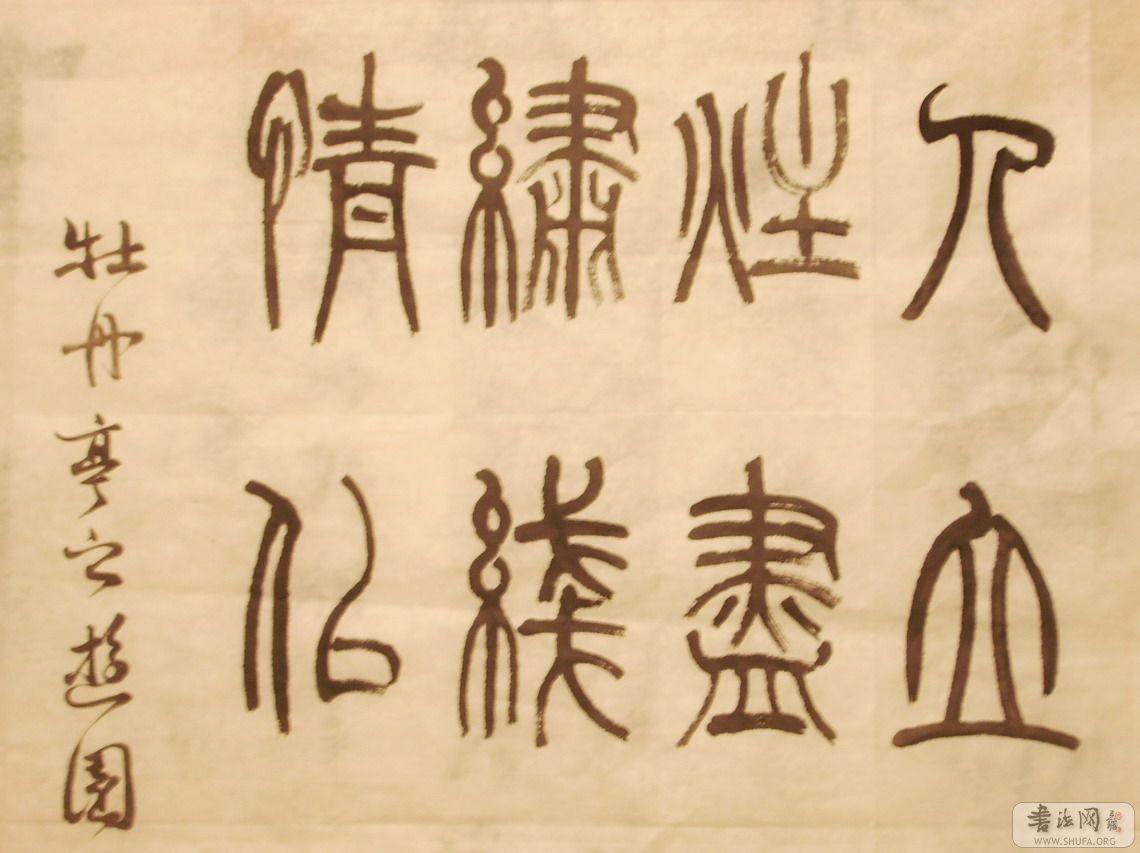 人立
炷盡
繡綫
情似
牡丹亭之遊園
書法网
WWW.SHUFA.ORG